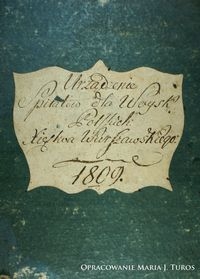 Urządzenie
Szpitalów dla Woysk
Polskich
Xięstwa Warszawskiego.
1809.
Opracowanie Maria J. Turos